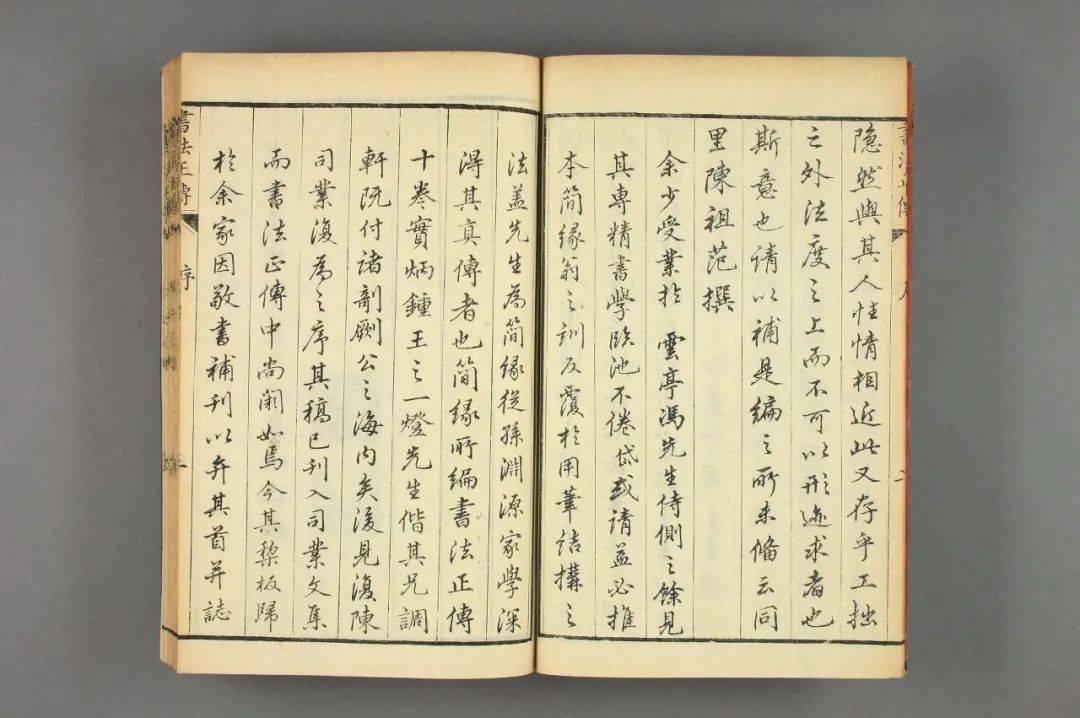 隱然與其人性情相近此又存乎工拙
之外法度之上而不可以形迹求者也
斯意也請以補是編之所未備云同
里陳祖范撰
余少受業於　雲亭馮先生侍側之餘見
其專精書學臨池不倦岱或請益必推
本簡緣翁之訓反覆於用筆結搆之
法蓋先生為簡緣從孫淵源家學深
得其真傳者也簡緣所編書法正傳
十卷實炳鍾王之一燈先生偕其兄調
軒既付諸剞劂公之海內矣後見復陳
司業復為之序其稿已刊入司業文集
而書法正傳中尚闕如焉今其棃板歸
於余家因敬書補刊以弁其首并誌
書法正傳
序